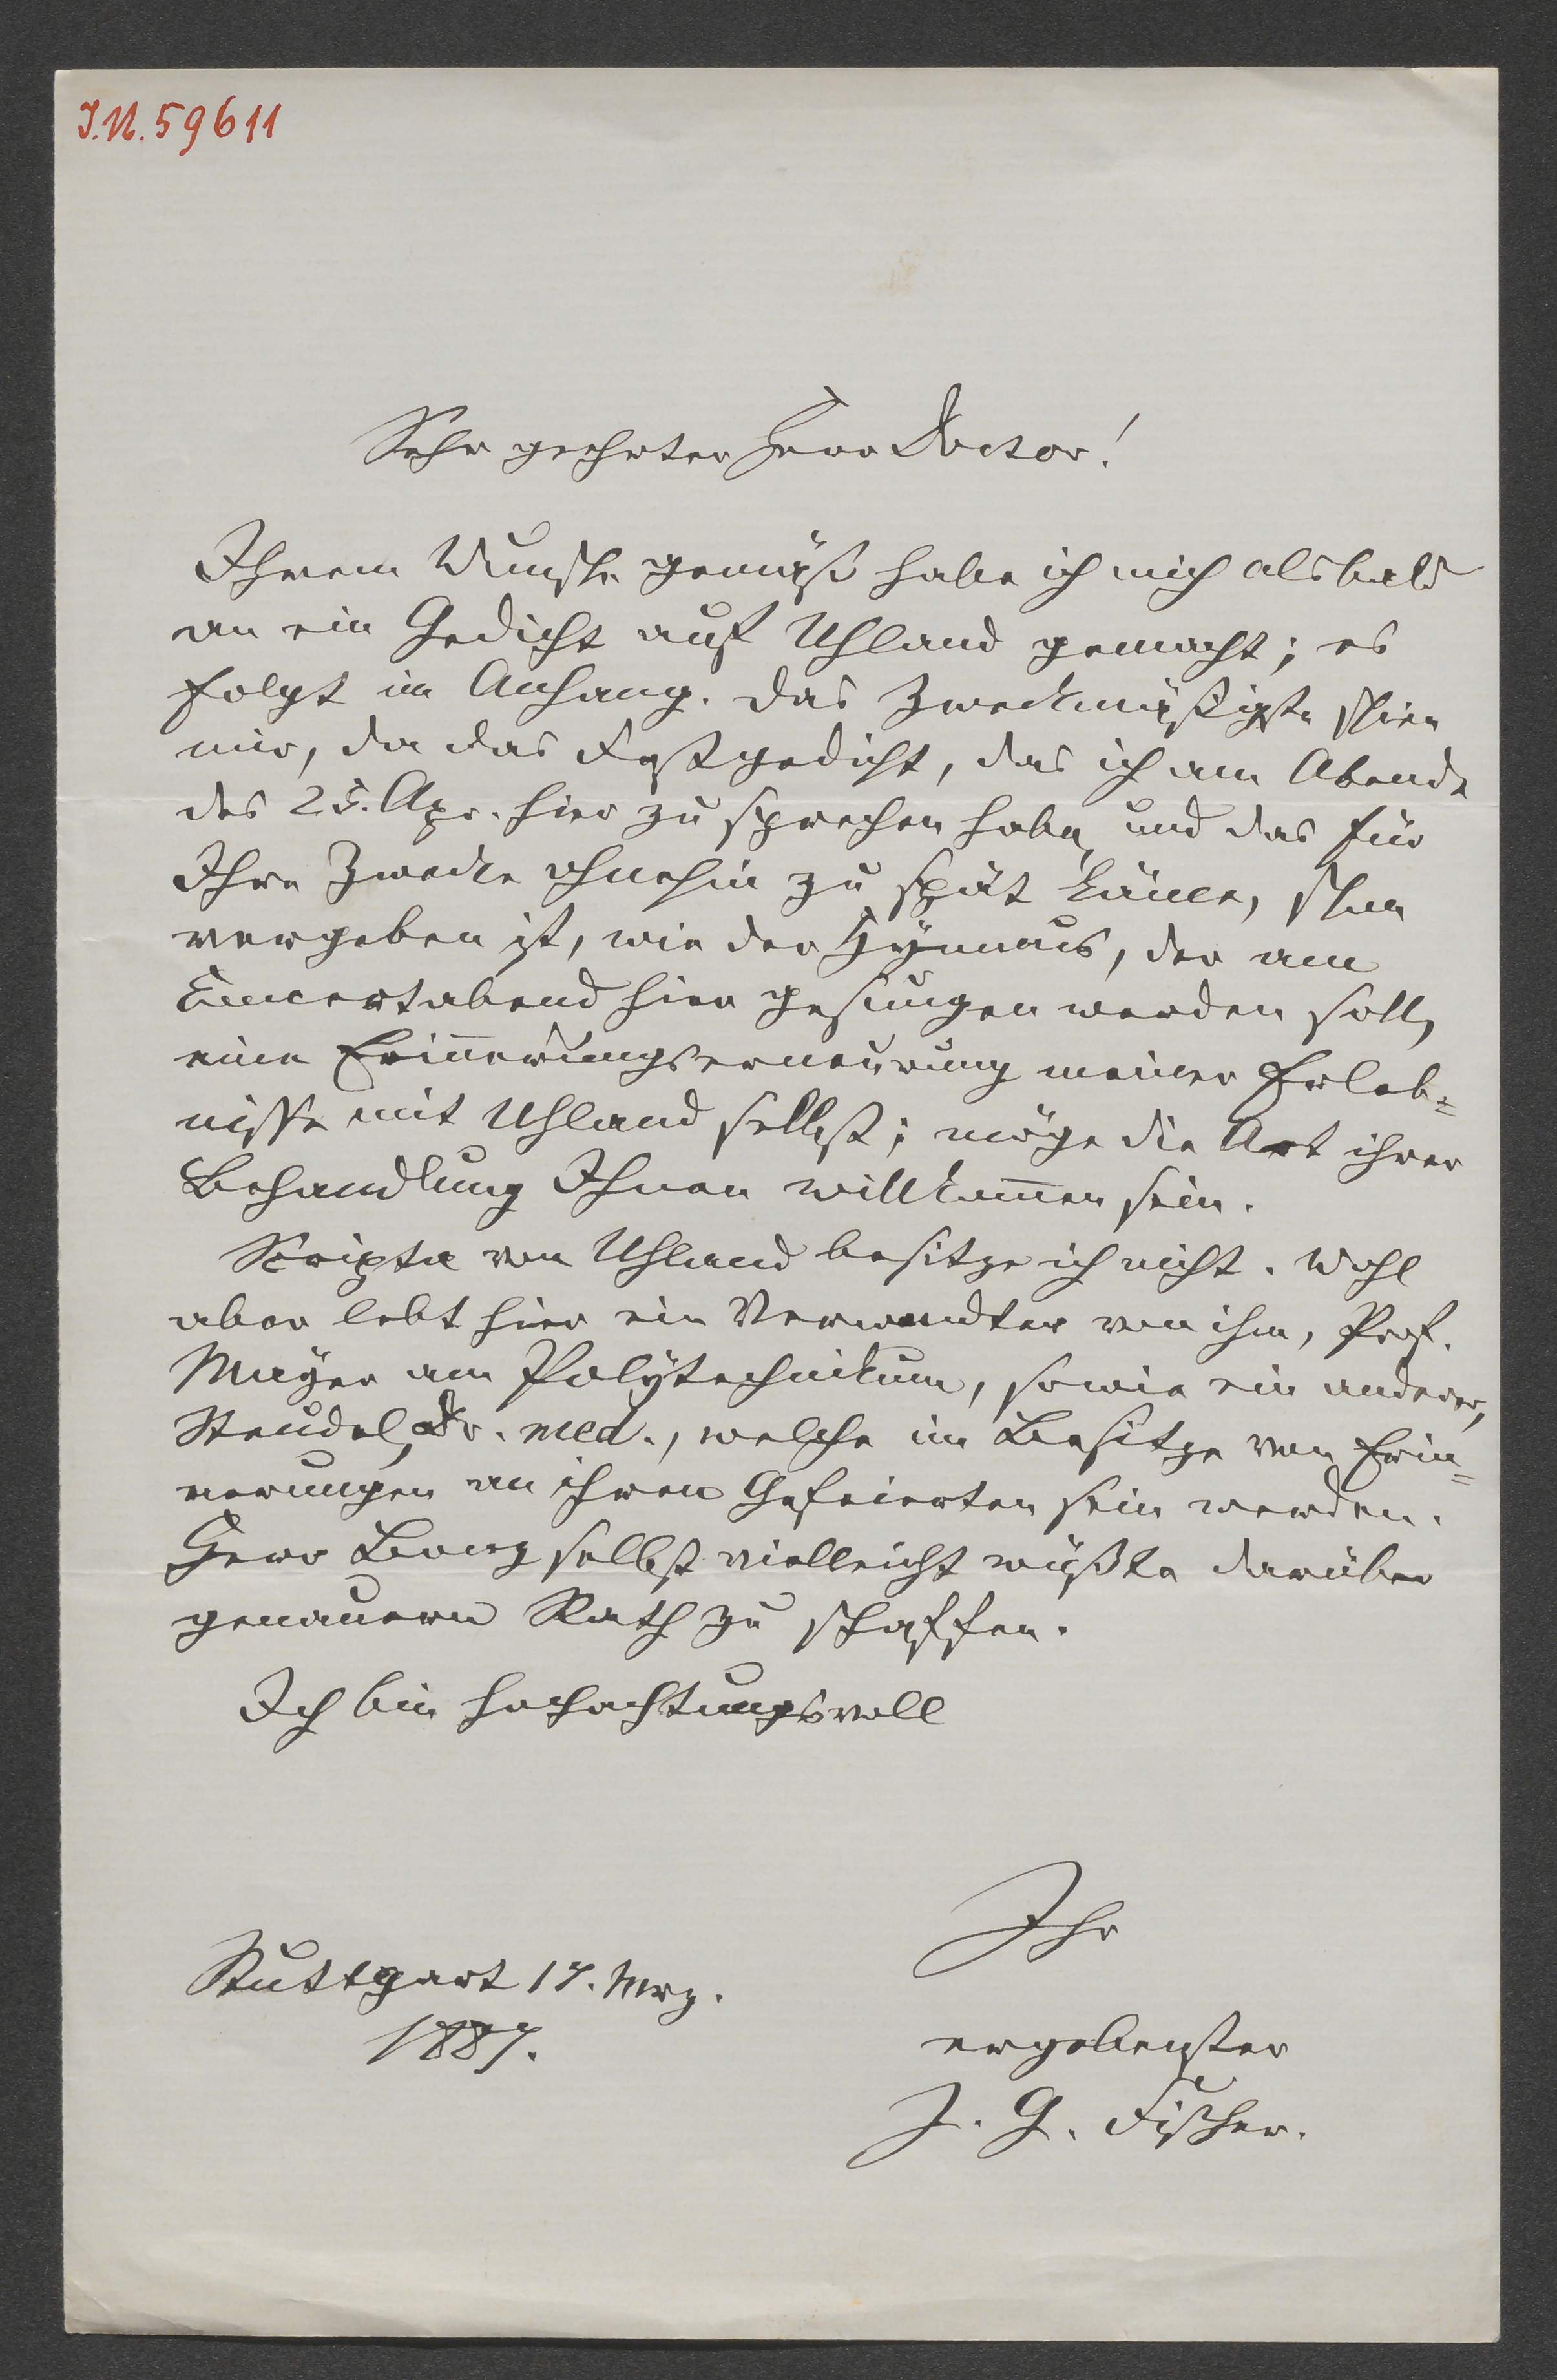 I.N. 59611
Sehr geehrter Herr Doctor!
Ihrem Wunsche gemäß habe ich mich alsbald
an ein Gedicht auf Uhland gemacht; es
folgt im Anhang. Das Zweckmäßigste schien
mir, da das Festgedicht, das ich am Abende
des 25. Apr. hier zu sprechen habe und das für
Ihre Zwecke ohnehin zu spät käme, schon
vergeben ist, wie der Hÿmnus, der am
Concertabend hier gesungen werden soll,
eine Erin̄erungserneurung meiner Erleb=
nisse mit Uhland selbst; möge die Art ihrer
Behandlung Ihnen willkom̄en sein.
Scripta von Uhland besitze ich nicht. Wohl
aber lebt hier ein Verwandter von ihm, Prof.
Mayer am Polÿtechnikum, sowie ein anderer,
Steudel, Dr. med., welche im Besitze von Erin=
nerungen an ihren Gefeierten sein werden.
Herr selbst vielleicht wüßte darüber
genauern Rath zu schaffen.
Ich bin hochachtungsvoll
Ihr
Stuttgart 17. Mrz.
1887.
ergebenster
J. G. Fischer.